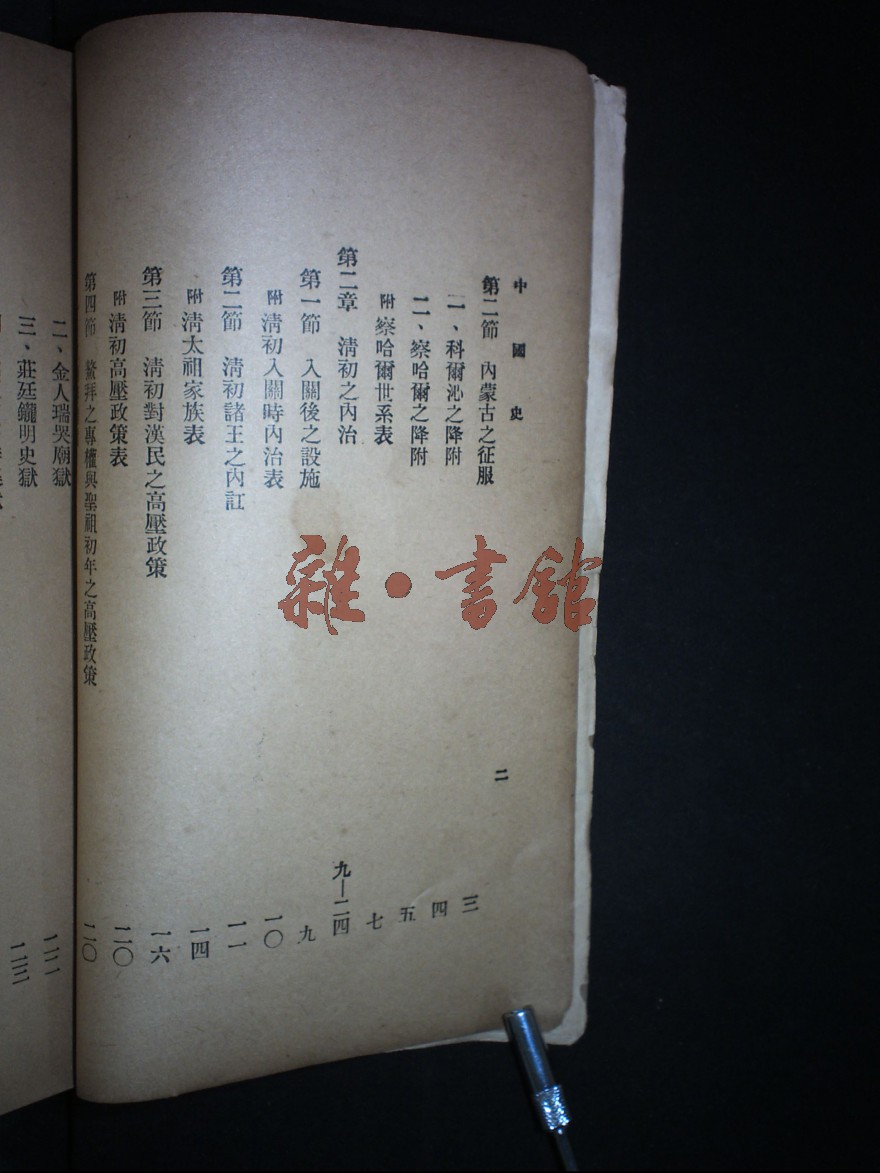 中國史
二
第二節 內蒙古之征服 三
一、科爾沁之降附 四
二、察哈爾之降附 五
附 察哈爾世系表 七
第二章 淸初之內治 九—二四
第一節 入關後之設施 九
附 淸初入關時內治表 一〇
第二節 淸初諸王之內訌 一一
附 淸太祖家族表 一四
第三節 淸初對漢民之高壓政策 一六
附 淸初高壓政策表 二〇
第四節 鰲拜之專權與聖祖初年之高壓政策 二〇
二、金人瑞哭廟獄
三、莊廷鑨明史獄
雜·書館